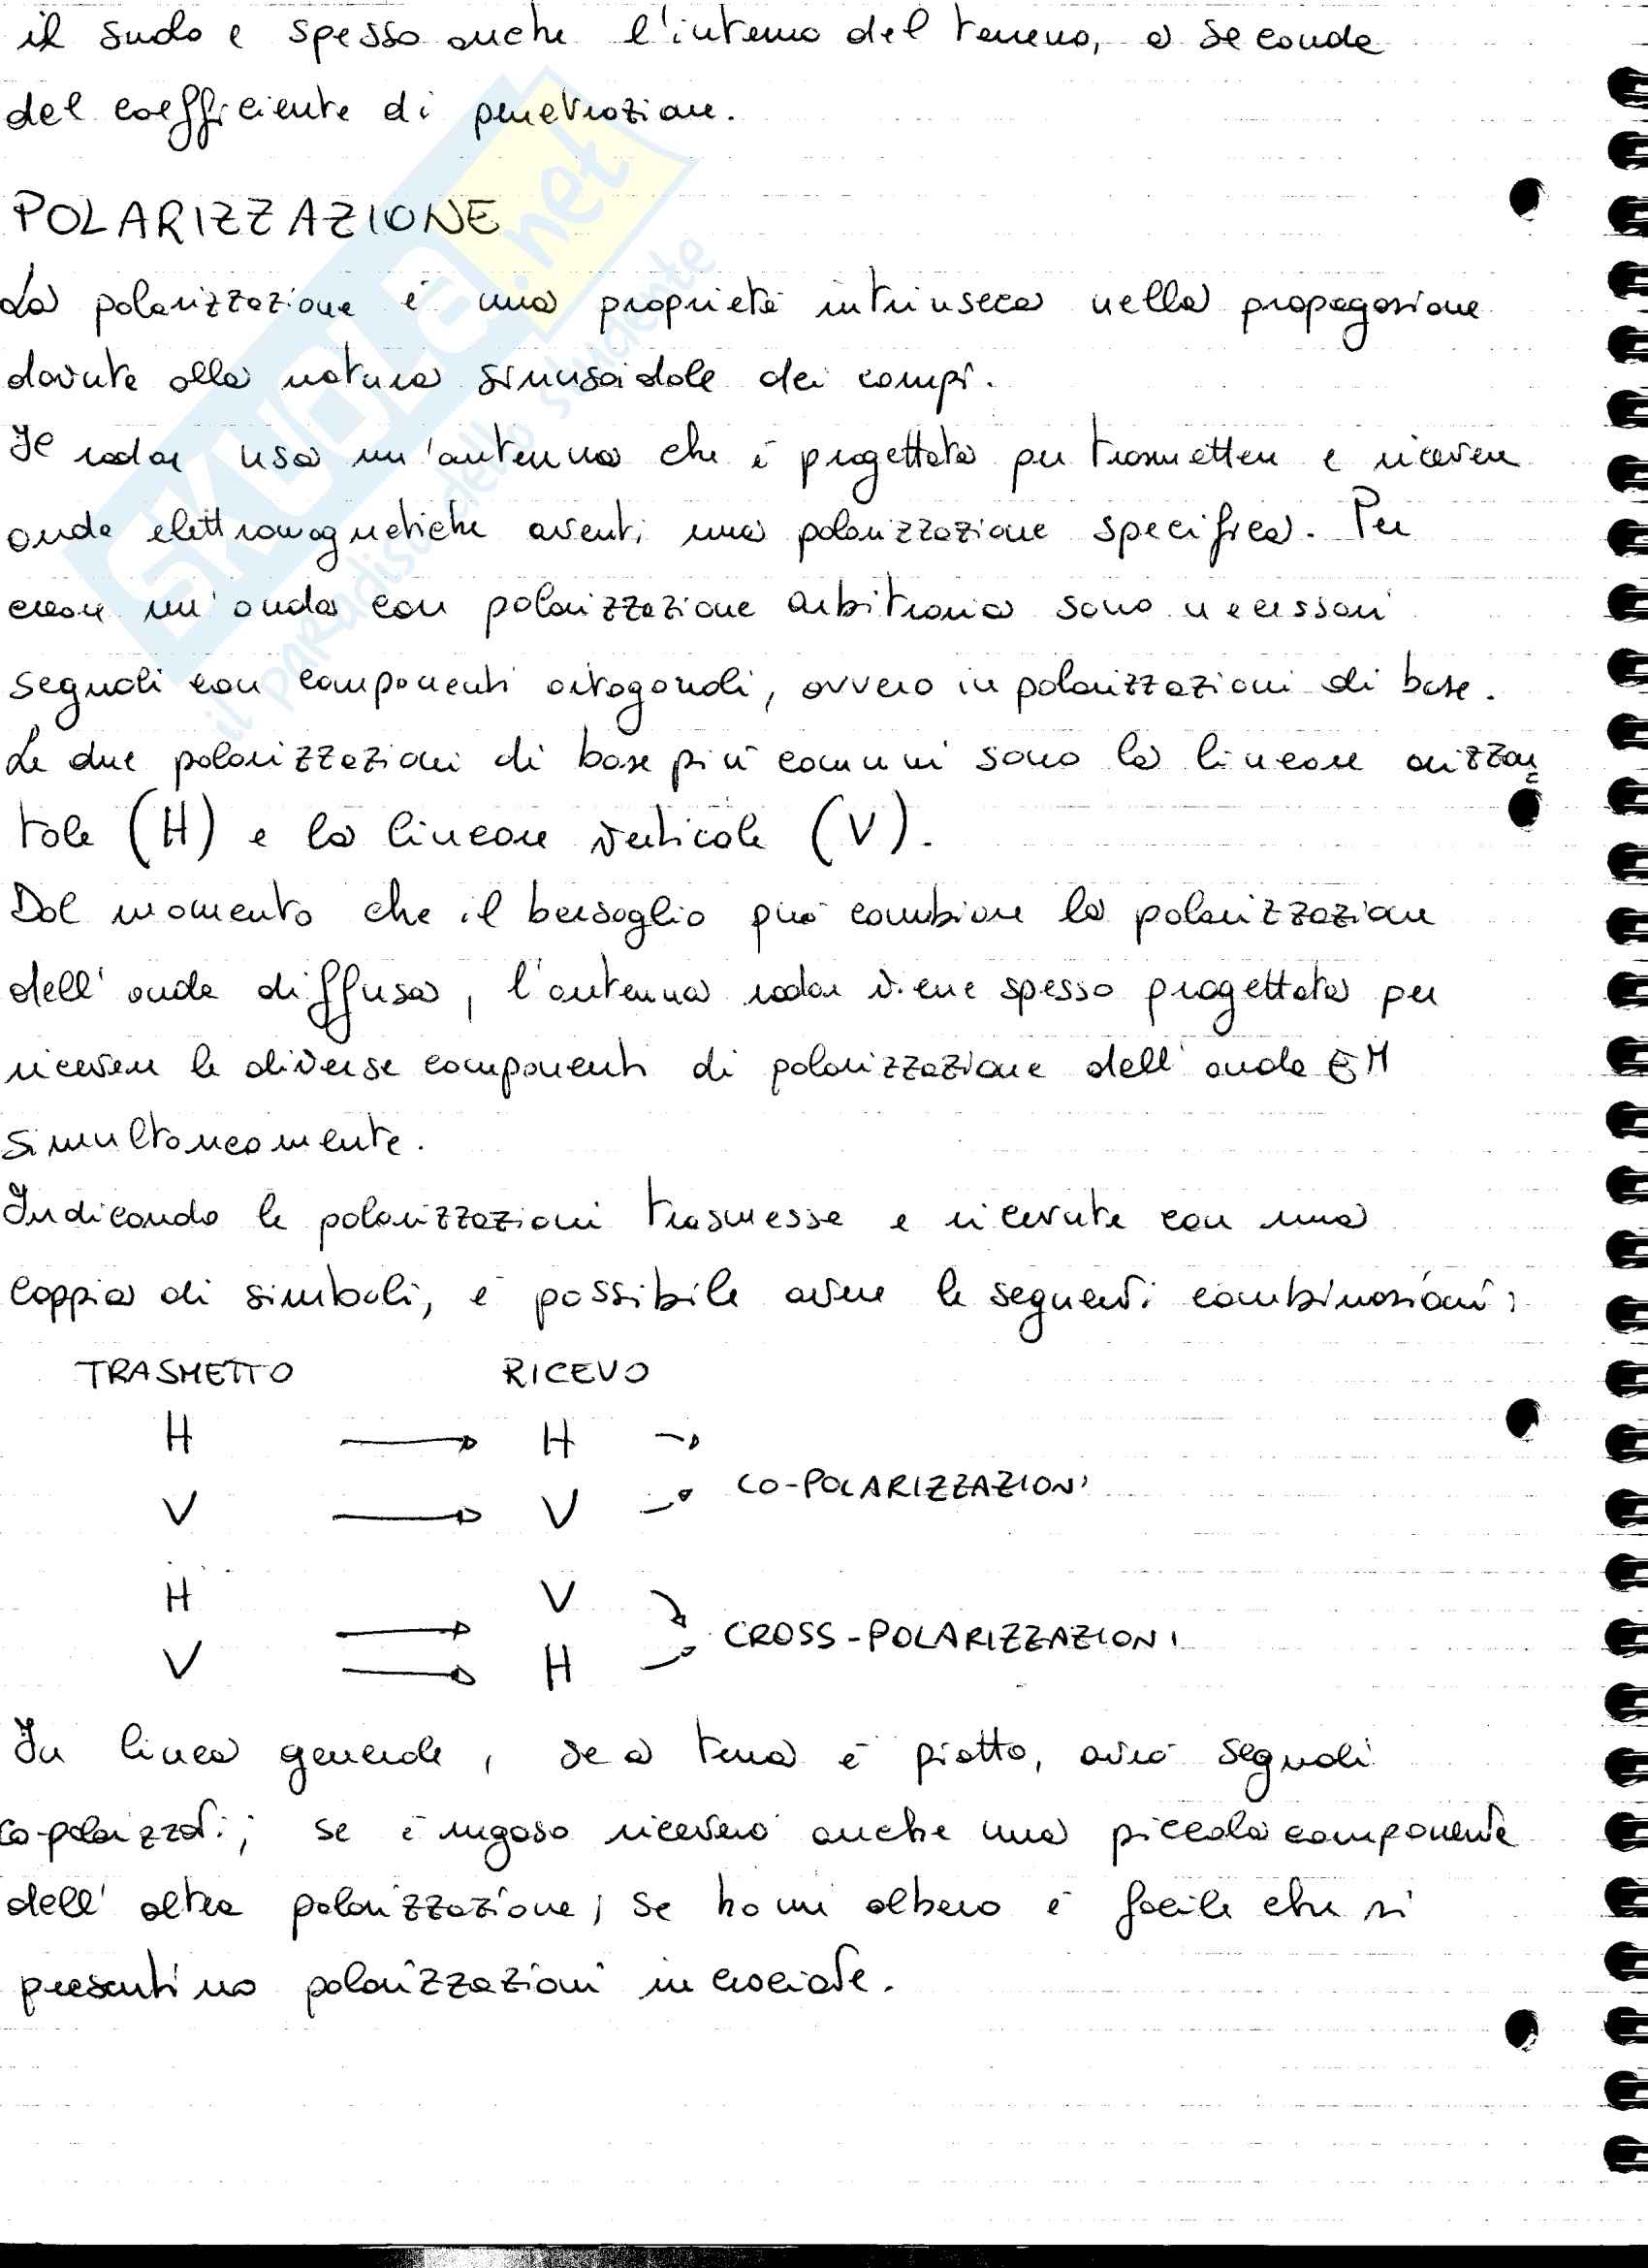 il suolo e spesso anche l'interno del terreno, a seconda
del coefficiente di penetrazione.
POLARIZZAZIONE
La polarizzazione è una proprietà intrinseca nella propagazione
dovute alla natura sinusoidale dei campi.
Il radar usa un'antenna che è progettata per trasmettere e ricevere
onde elettromagnetiche aventi una polarizzazione specifica. Per
creare un'onda con polarizzazione arbitraria sono necessari
segnali con componenti ortogonali, ovvero in polarizzazioni di base.
Le due polarizzazioni di base più comuni sono la lineare orizzon=
tale (H) e la lineare verticale (V).
Dal momento che il bersaglio può cambiare la polarizzazione
dell'onda diffusa, l'antenna radar viene spesso progettata per
ricevere le diverse componenti di polarizzazione dell'onda EM
simultaneamente.
Indicando le polarizzazioni trasmesse e ricevute con una
coppia di simboli, è possibile avere le seguenti combinazioni:
TRASMETTO RICEVO
H → H →
CO-POLARIZZAZIONI
V → V →
H → V →
CROSS-POLARIZZAZIONI
V → H →
In linea generale, se a terra è piatto, avrò segnali
co-polarizzati; se è rugoso riceverò anche una piccola componente
dell'altra polarizzazione; se ho un albero è facile che si
presentino polarizzazioni incrociate.
SKUOLA.net
il PARadiso dello studente